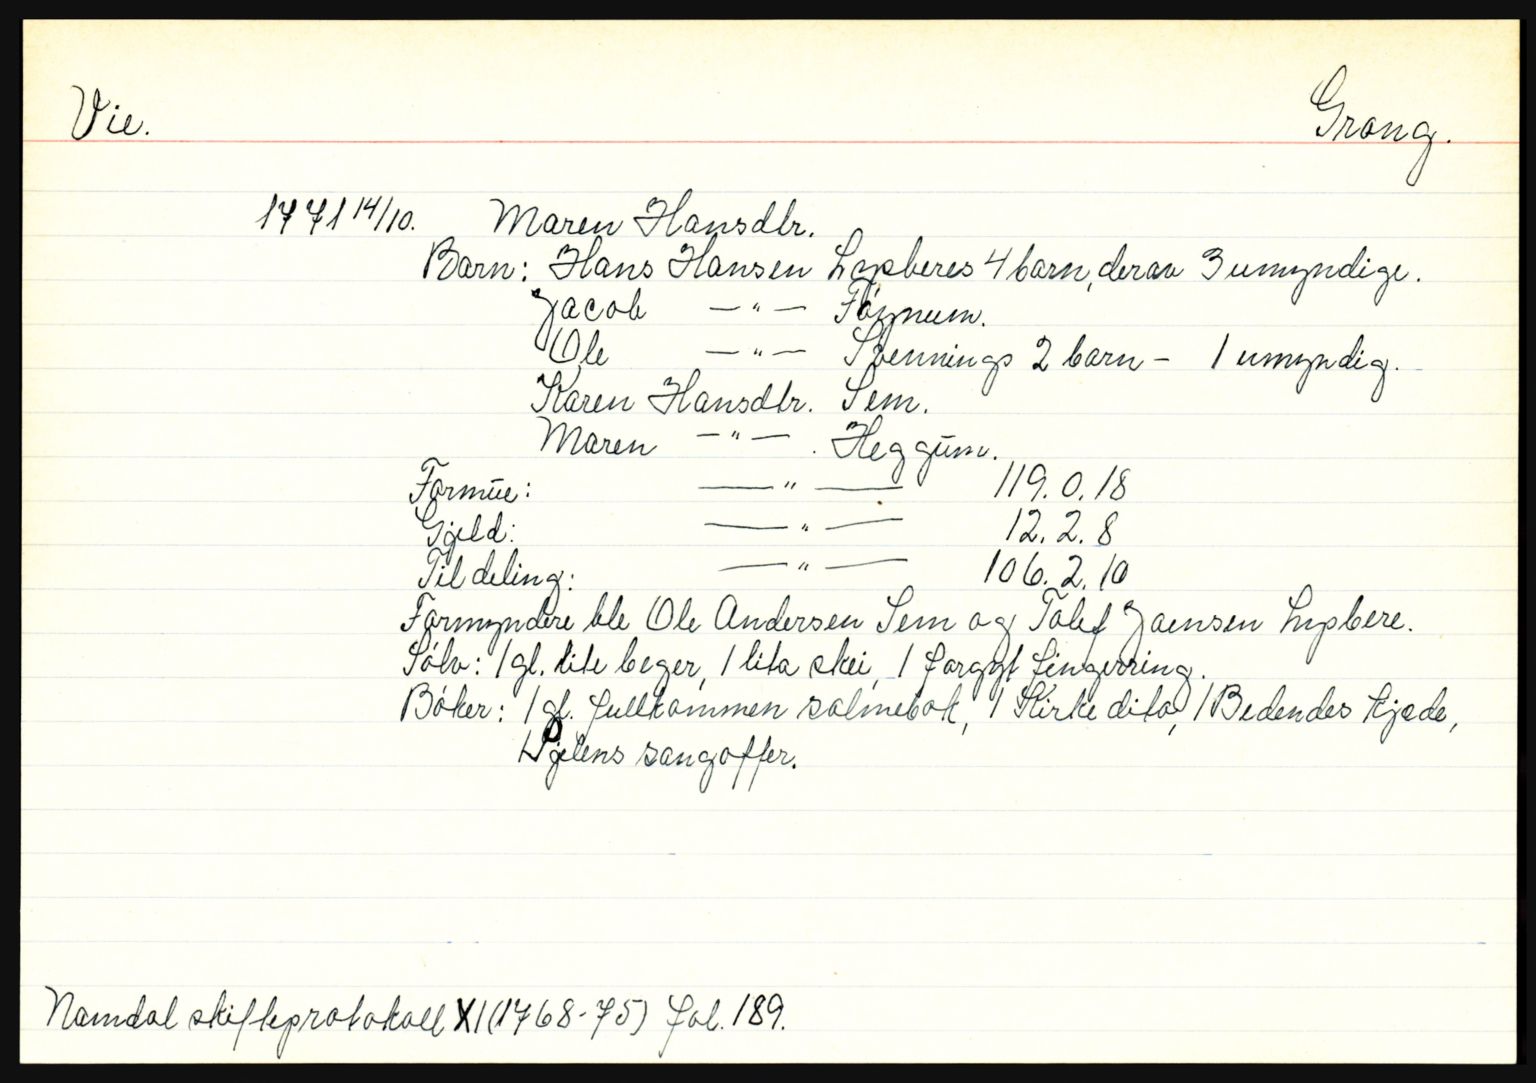 Vie. Grong.
1771 14/10. Maren Hansdtr.
Barn: Hans Hansen Luberes 4 barn, derav 3 umyndige.
Jacob —"— Formum.
Ole —"— Svennings 2 barn - 1 umyndig.
Karen Hansdtr. Sem.
Maren —"— . Heggum.
Formue: —"— 119. 0. 18
Gjeld: —"— 12. 2. 8
Til deling: —"— 106. 2. 10
Formyndere ble Ole Andersen Sem og Tolef Joensen
Sølv: 1 gl. lite beger, 1 lita skei, 1 forgyt fingerring.
Bøker: 1 gl. fullkommen salmebok, 1 Kirke dito, 1 Bedendes kjæde,
sangoffer.
Namdal skifteprotokoll XI (1768-75) fol. 189.